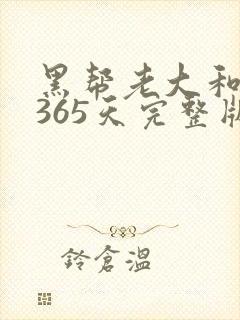 黑帮老大和
365天完整版
鈴倉溫